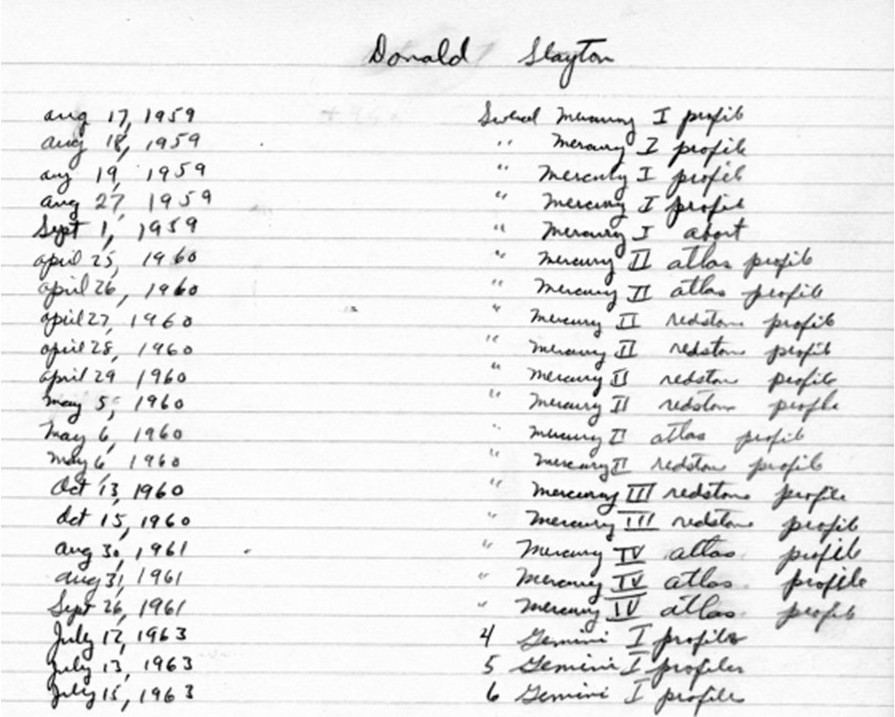 Donald Slayton
Aug 17, 1959 Several Mercury I profile
Aug 18, 1959 " Mercury I profile
Aug 19, 1959 " Mercury I profile
Aug 27, 1959 " Mercury I profile
Sept 1, 1959 " Mercury I abort
April 25, 1960 " Mercury II atlas profile
April 26, 1960 " Mercury II atlas profile
April 27, 1960 " Mercury II redstone profile
April 28, 1960 " Mercury II redstone profile
April 29 1960 " Mercury II redstone profile
May 5, 1960 " Mercury II redstone profile
May 6, 1960 " Mercury II atlas profile
May 6, 1960 " Mercury II redstone profile
Oct 13, 1960 " Mercury III redstone profile
Oct 15, 1960 " Mercury III redstone profile
Aug 30, 1961 " Mercury IV atlas profile
Aug 31, 1961 " Mercury IV atlas profile
Sept 26, 1961 " Mercury IV atlas profile
July 12, 1963 4 Gemini I profiles
July 13, 1963 5 Gemini I profiles
July 15, 1963 6 Gemini I profiles